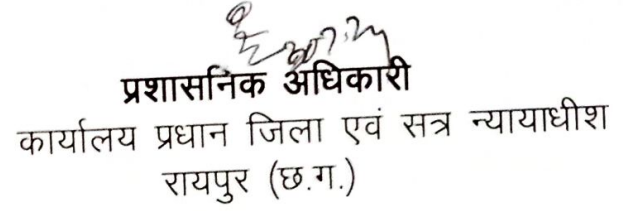 प्रशासनिक अधिकारी
कार्यालय प्रधान जिला एवं सत्र न्यायाधीश
रायपुर (छ.ग.)